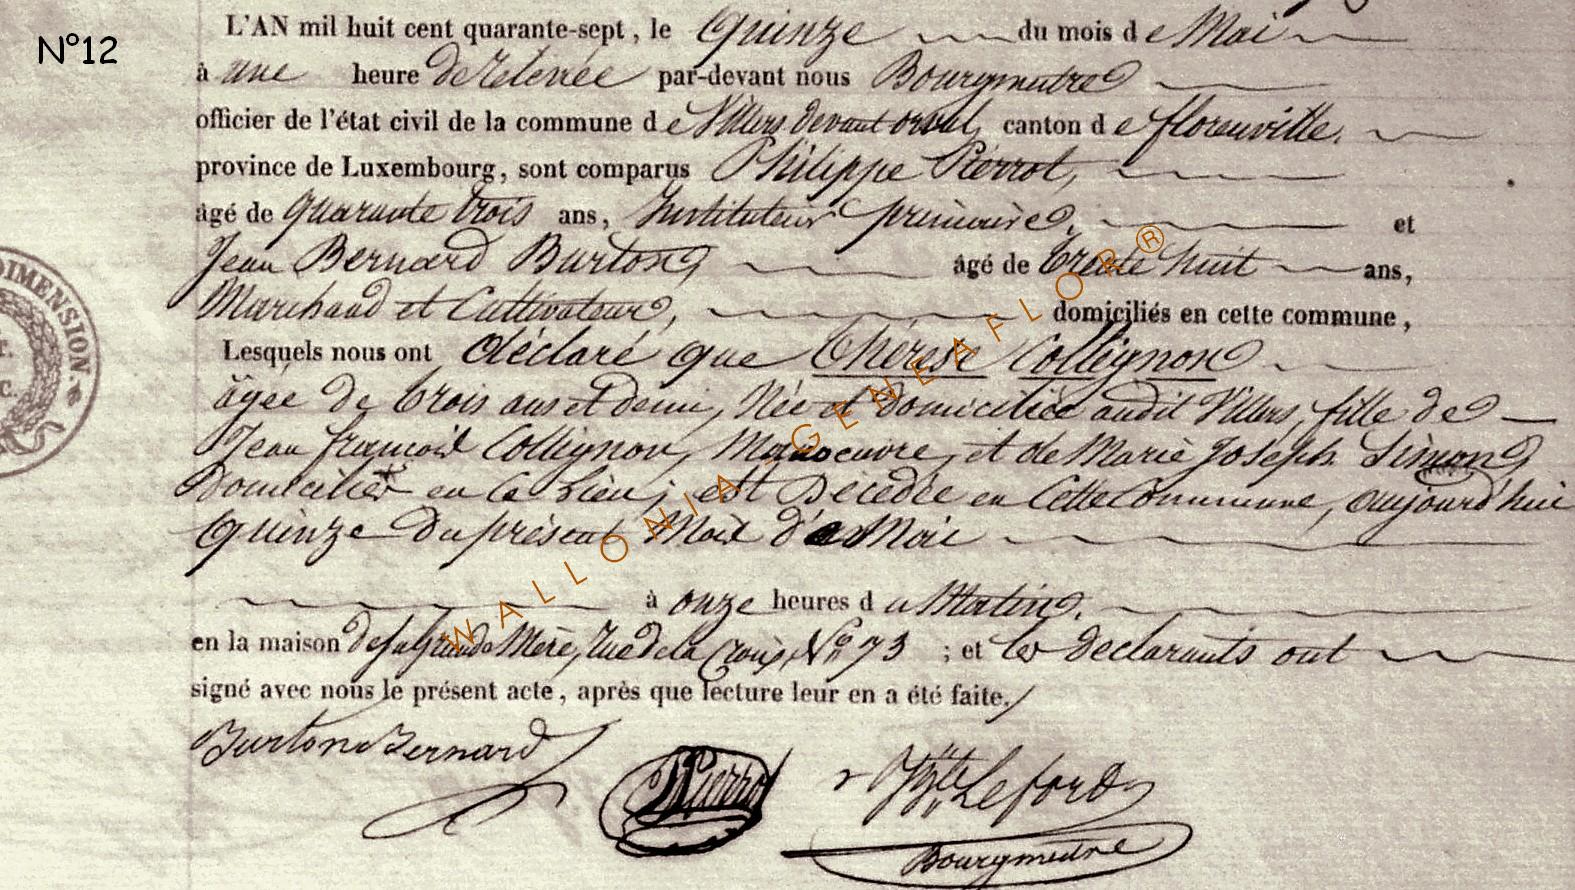 N°12
L'AN mil huit cent quarante-sept, le Quinze du mois de Mai
à une heure de relevée par-devant nous Bourgmestre
officier de l'état civil de la commune de Villers devant orval, canton de florenville.
province de Luxembourg, sont comparus Philippe Pierrot,
âgé de quarante trois ans, Instituteur primaire, et
Jean Bernard Burton, âgé de trente huit ans,
Marchand et Cultivateur, domiciliés en cette commune,
Lesquels nous ont déclaré que Thérèse Collignon
âgée de trois ans et demi, Née et domiciliée audit Villers, fille de
Jean françois Collignon, Manoeuvre, et de Marie Joseph Simon,
Domiciliés en ce lieu; est Décédée en cette Commune, aujourd'hui
Quinze du présent Mois de Mai
à onze heures du Matin.
en la maison de sa Grande Mère, rue de la Croix, N° 73 ; et les déclarants ont
signé avec nous le présent acte, après que lecture leur en a été faite./
Burton Bernard
Pierrot
Lefort
Bourgmestre
DIMENSION
WALLONIA-GENEAFLOR®